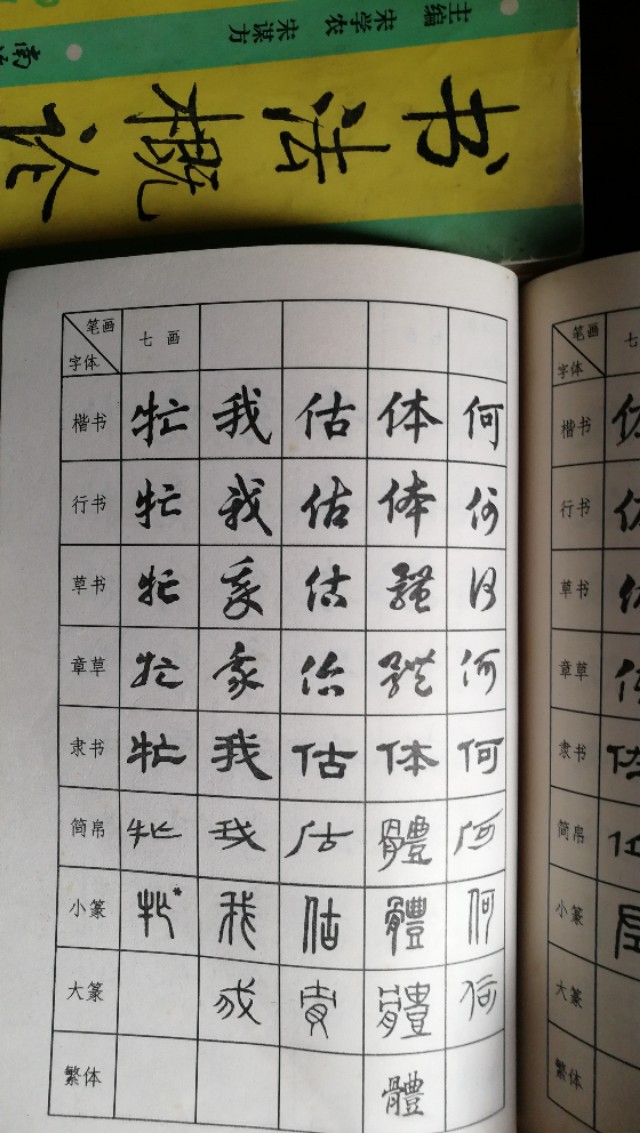 主编 宋学农 宋谋方
书法概论
笔画
字体
七画
楷书 牤 我 估 体 何
行书 牤 我 估 体 何
草书 牤 我 估 體 何
章草 牤 我 估 體 何
隶书 牤 我 估 体 何
简帛 牤 我 估 體 何
小篆 牤* 我 估 體 何
大篆 我 估 體 何
繁体 體
笔画 七
字体
楷书
行书
草书
章草
隶书
简帛
小篆
大篆
繁体